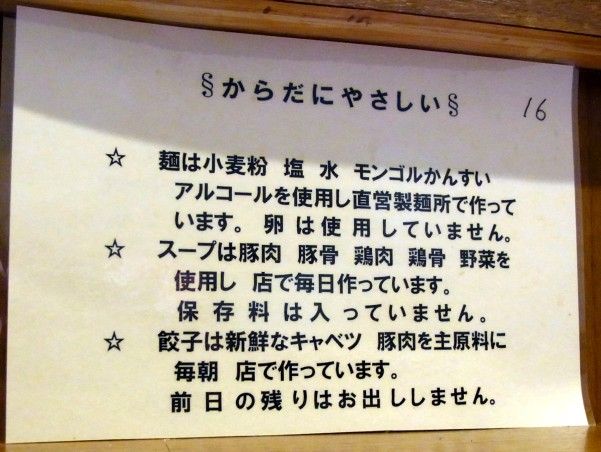 §からだにやさしい§
16
☆ 麺は小麦粉 塩 水 モンゴルかんすい
アルコールを使用し直営製麺所で作って
います。卵は使用していません。
☆ スープは豚肉 豚骨 鶏肉 鶏骨 野菜を
使用し 店で毎日作っています。
保存料は入っていません。
☆ 餃子は新鮮なキャベツ 豚肉を主原料に
毎朝 店で作っています。
前日の残りはお出ししません。